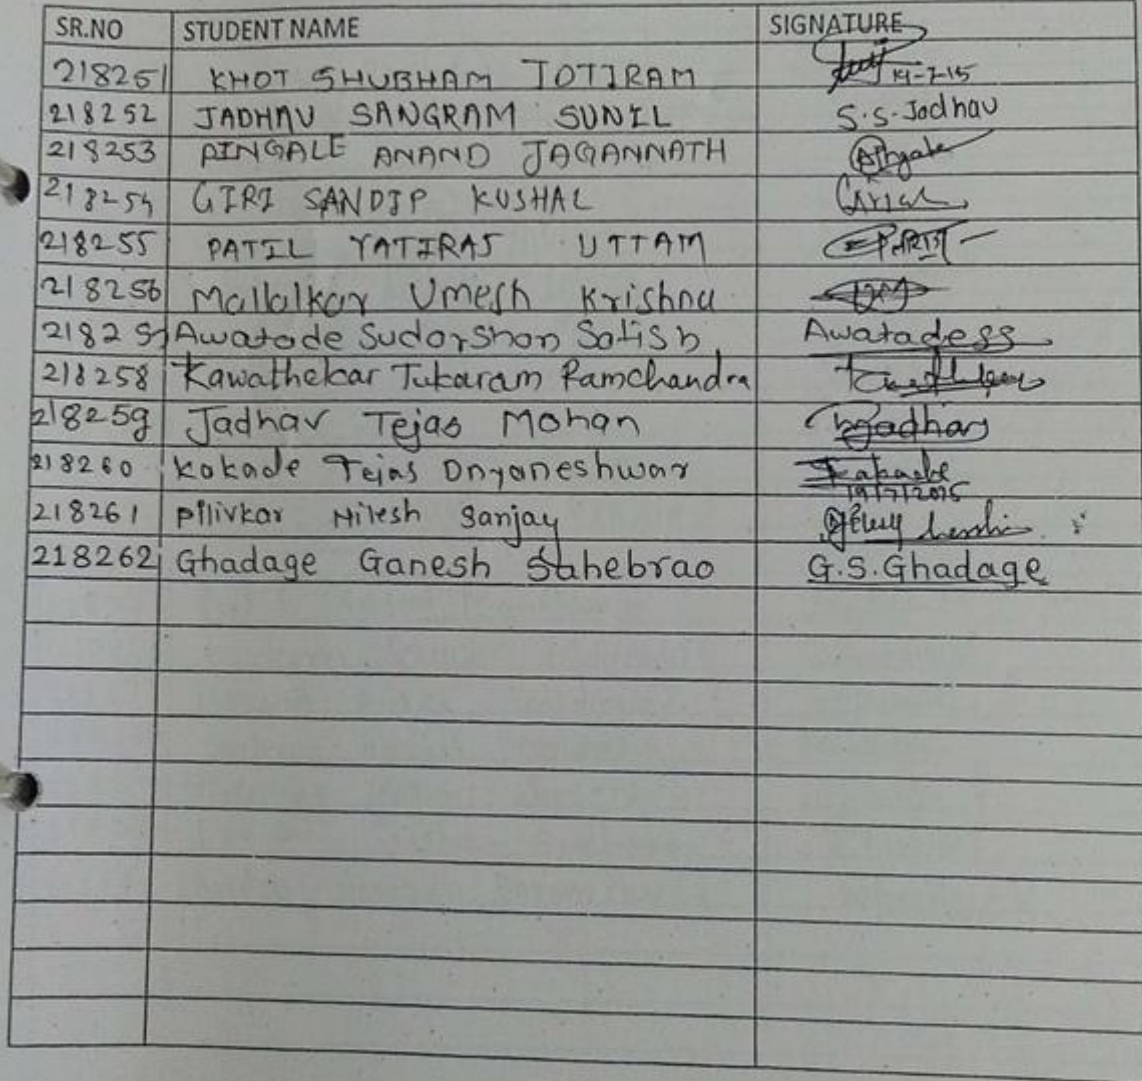 SR.NO STUDENT NAME SIGNATURE
218251 KHOT SHUBHAM JOTIRAM 14-7-15
218252 JADHAV SANGRAM SUNIL S.S.Jadhav
218253 PINGALE ANAND JAGANNATH
218254 GIRI SANDIP KUSHAL
218255 PATIL YATIRAJ UTTAM
218256 Mallalkar Umesh Krishna
218257 Awatade Sudarshan Satish Awatadess
218258 Kawathekar Tukaram Ramchandra
218259 Jadhav Tejas Mohan
218260 Kakade Tejas Dnyaneshwar Kakade
19/7/2015
218261 Pilivkar Nilesh Sanjay
218262 Ghadage Ganesh Sahebrao G.S.Ghadage